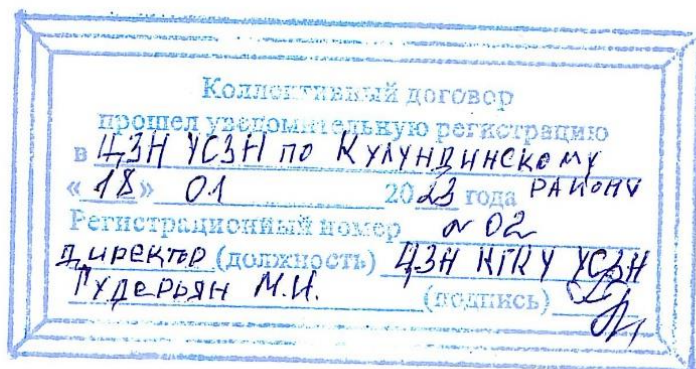 Коллективный договор
прошел уведомительную регистрацию
в ЦЗН УСЗН по Кулундинскому
« 18 » 01 2023 года району
Регистрационный номер № 02
директор (должность) ЦЗН КГКУ УСЗН
Гудерьян М.И. (подпись)